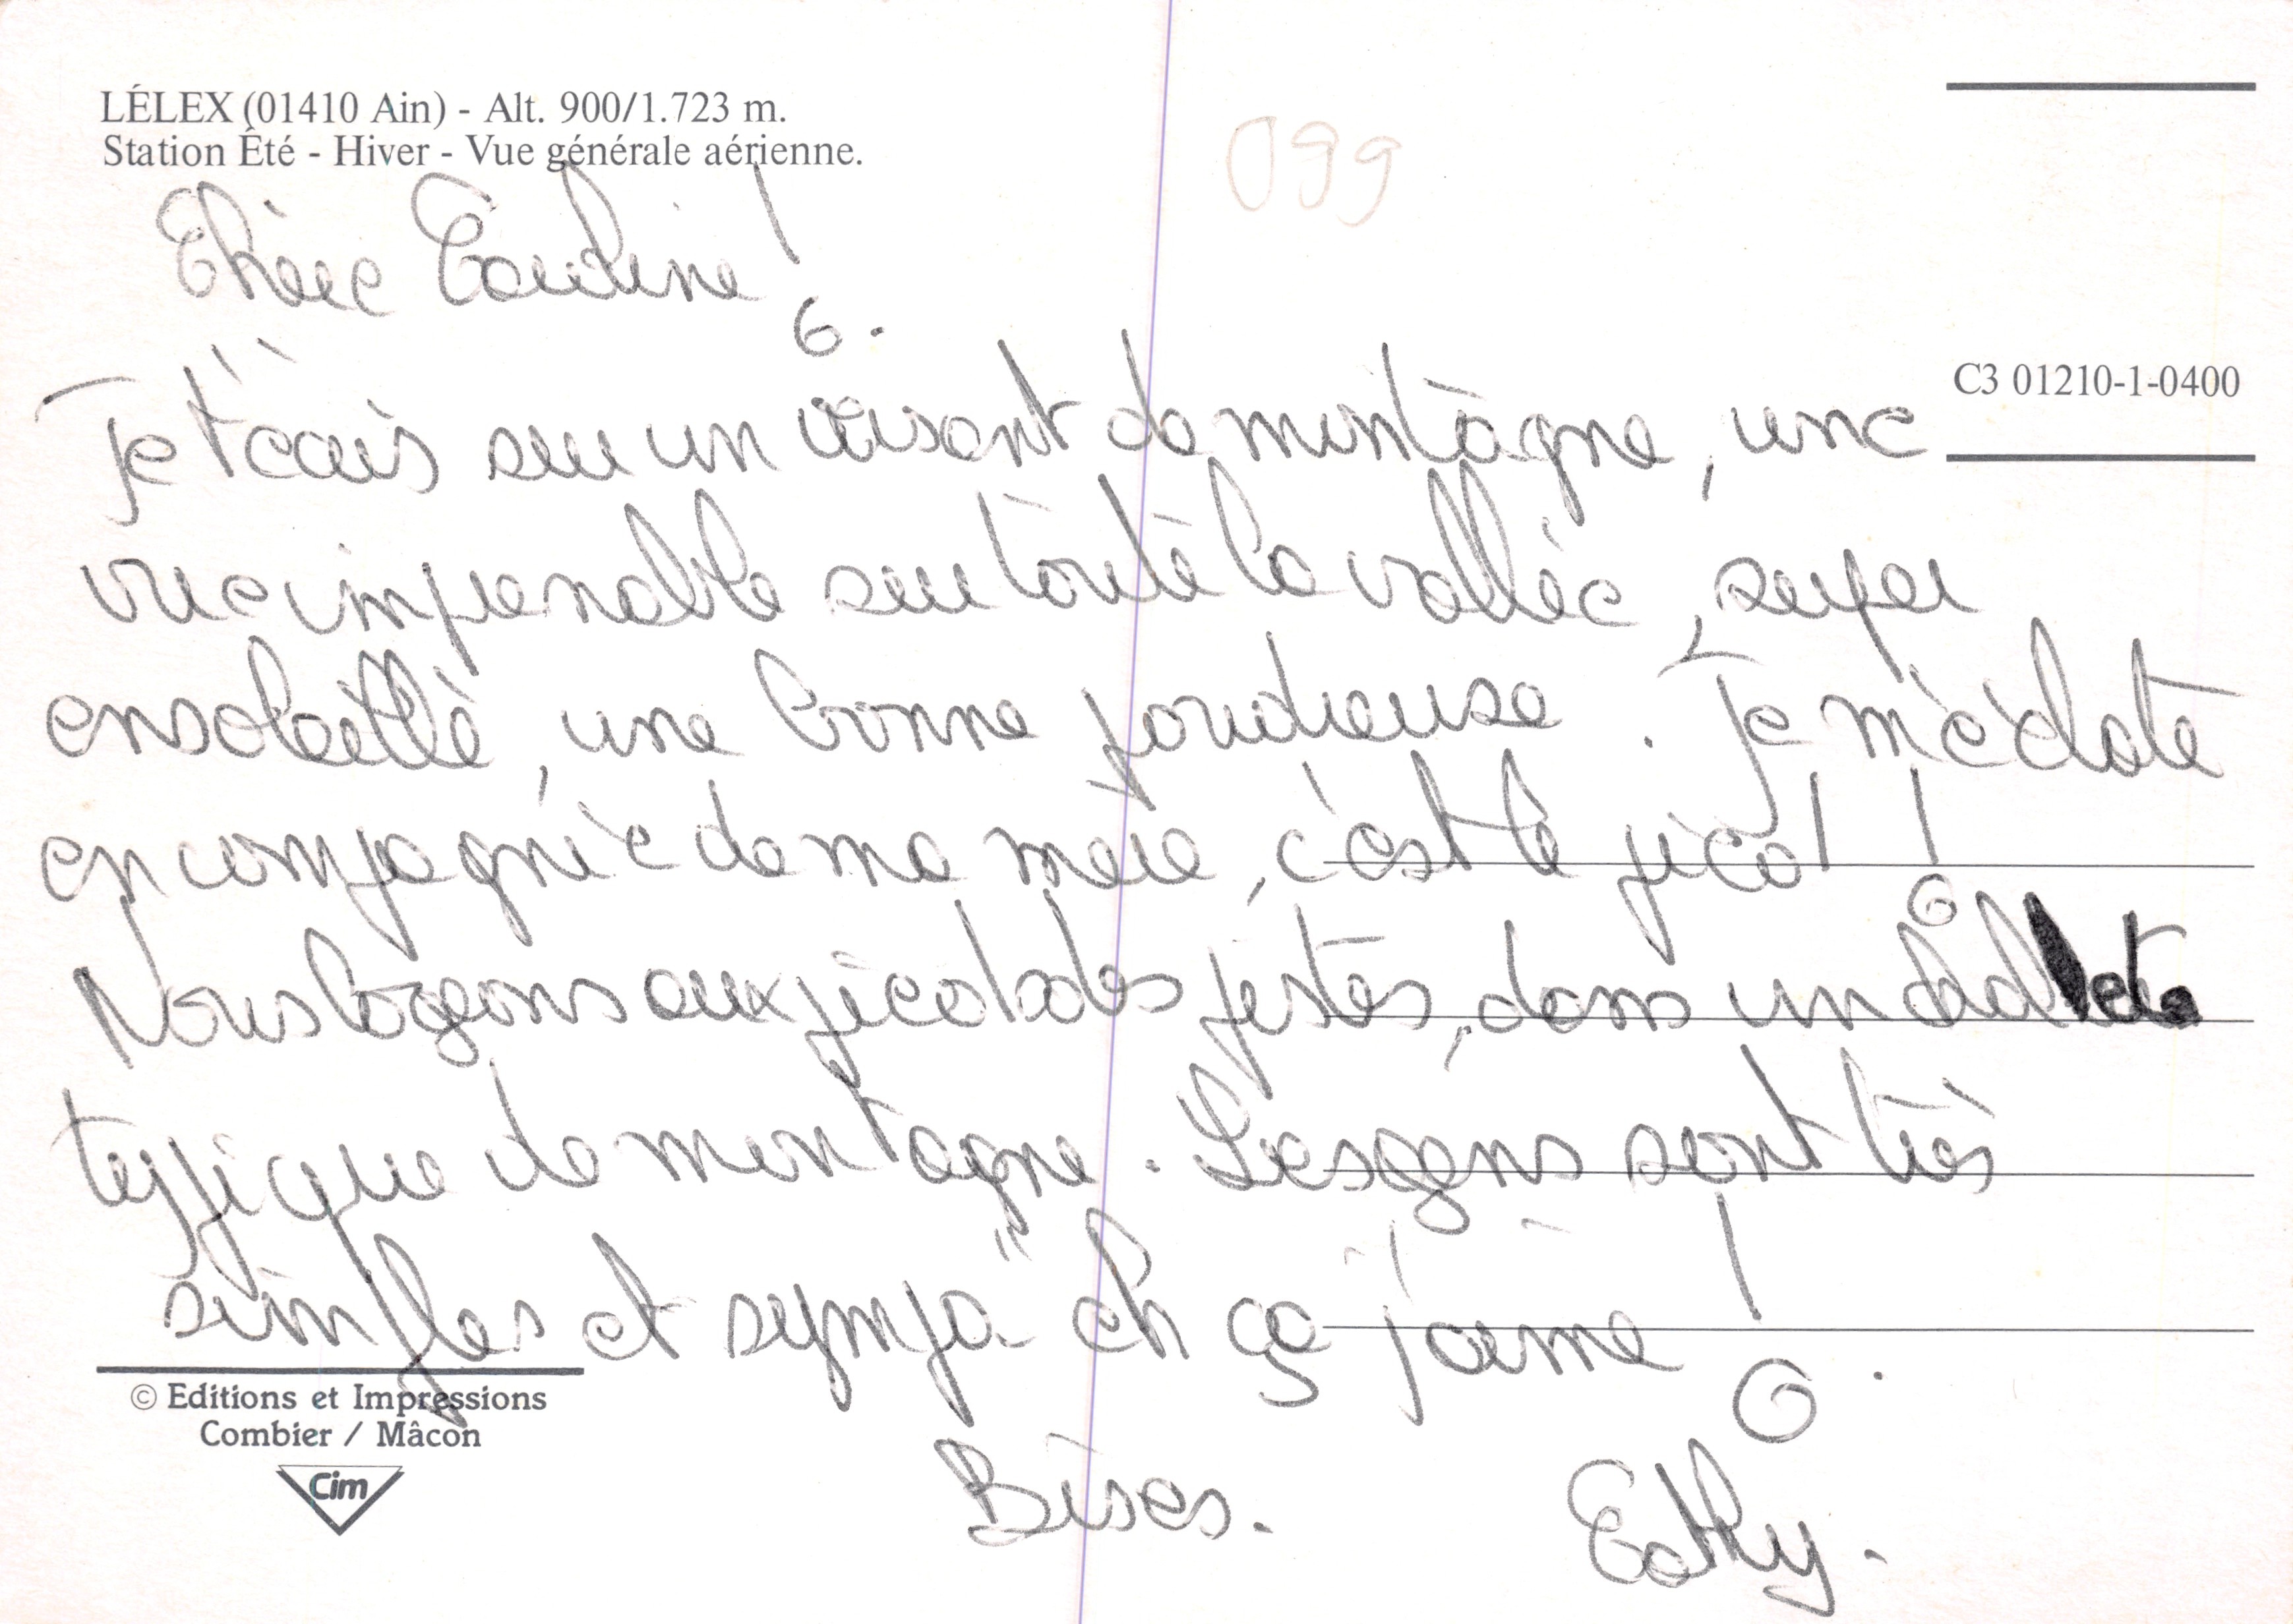 LÉLEX (01410 Ain) - Alt. 900/1.723 m.
Station Été - Hiver - Vue générale aérienne.
099
Chère Coudine!
C3 01210-1-0400
Je t'écris sur un versant de montagne, une
vue imprenable sur toute la vallée, super
ensoleillé, une bonne poudreuse. Je m'éclate
en compagnie de ma mère, c'est le picol!
Nous logeons aux pieds des pistes, dans un chalet
typique de montagne. Les gens sont très
simples et sympa" eh ça j'aime!
© Editions et Impressions
Combier / Mâcon
Cim
Bises.
Cathy.